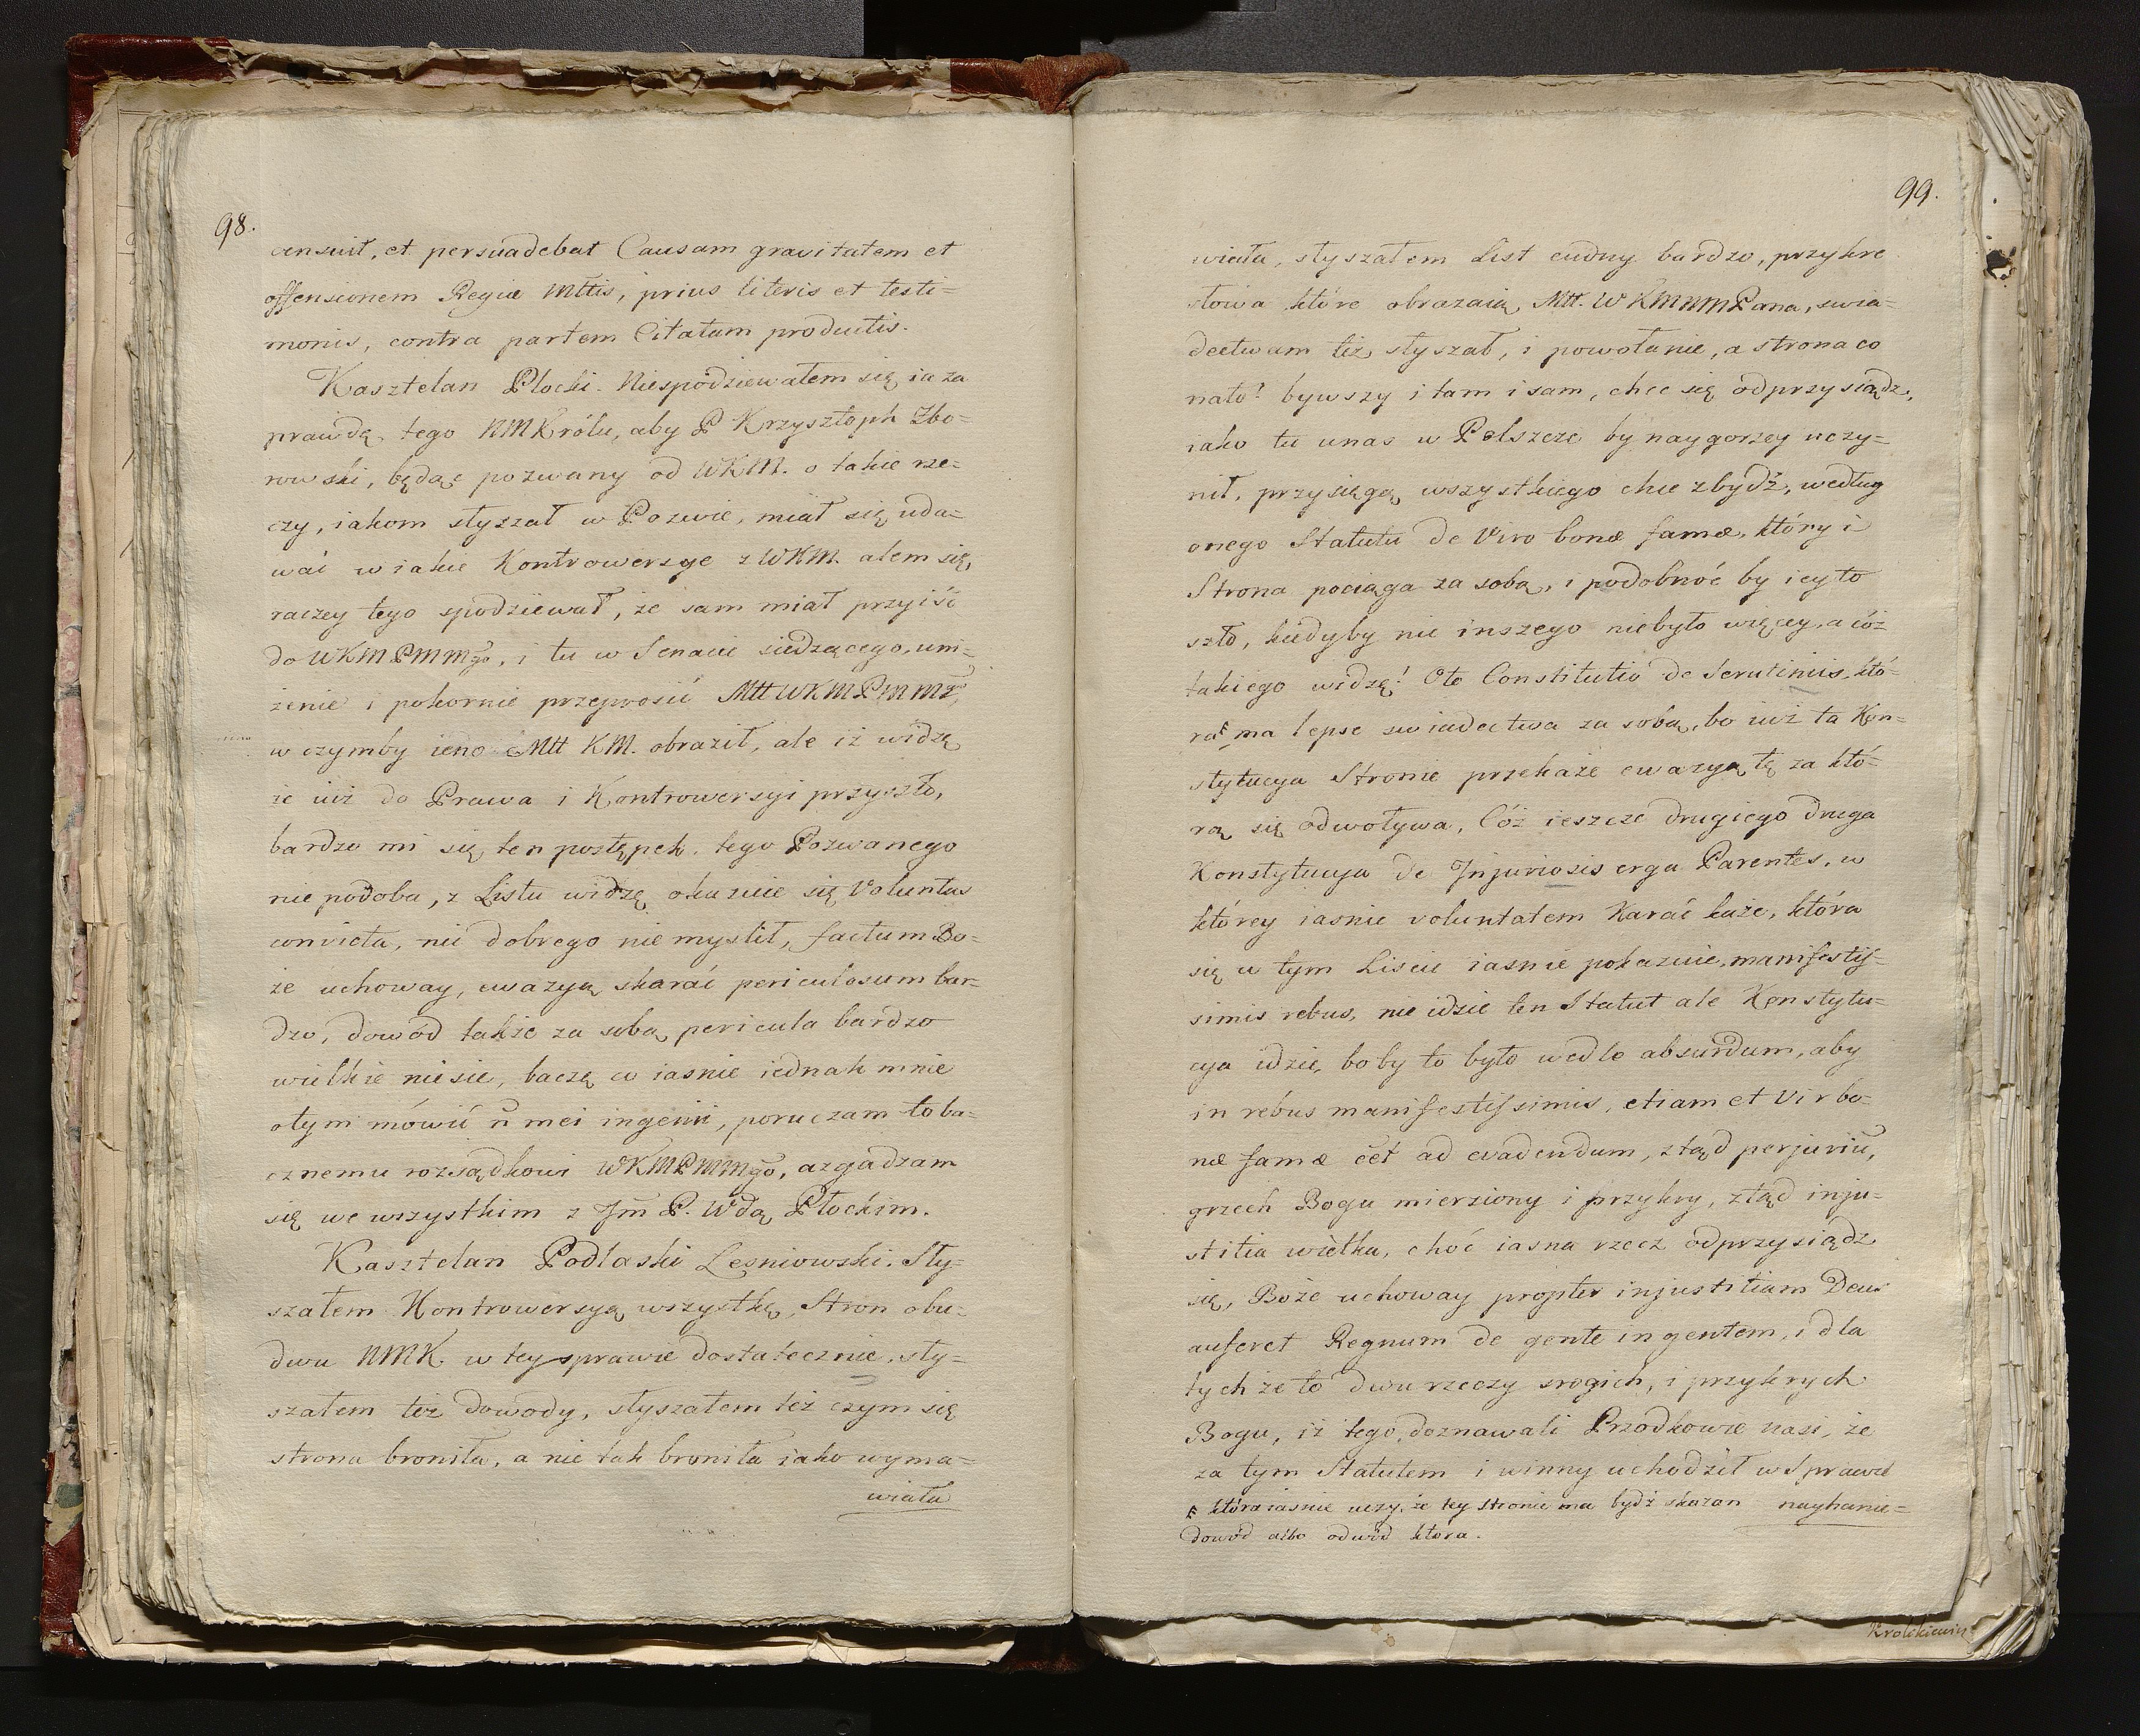 98.
censuit, et persuadebat Causam gravitatem et
offensionem Regiæ Mttis, prius literis et testi=
monis, contra partem Citatam productis.
Kasztelan Płocki. Niespodziewałem się ia za
prawdę tego NMKrólu, aby P Krzysztoph Zbo=
rowski, będąc pozwany od WKM. o takie rze=
czy, iakom słyszał w Pozwie, miał się uda=
wać w iakie Kontrowersye z WKM. alem się
raczey tego spodziewał, że sam miał przyiść
do WKMPMMgo, i tu w Senacie siedzącego, uni=
żenie i pokornie przeprosić Mtt WKMPMM
w czymby ieno Mtt KM. obraził, ale iż widzę
że iuż do Prawa i Kontrowersyi przyszło,
bardzo mi się ten postępek tego Pozwanego
nie podoba, z Listu widzę okazuie się Voluntas
convicta, nic dobrego nie myslił, factum Bo=
że uchoway, ewazyą skarać periculosum bar=
dzo, dowód także za sobą pericula bardzo
wielkie niesie, baczę co iasnie iednak mnie
otym mówić ñ mei ingenii, poruczam to ba=
cznemu rozsądkowi WKMPMMgo, azgadzam
się we wszystkim z Jm P. Wdą Płockim.
Kasztelan Podlaski Lesniowski. Sły=
szałem Kontrowersyą wszystką Stron obu=
dwu NMK. w tey sprawie dostatecznie, sły=
szałem też dowody, słyszałem też czym się
strona broniła, a nie tak broniła iako wyma=
wiała
99.
wiała, słyszałem List cudny bardzo, przykre
słowa które obrazaią Mtt. WKMNMPana, swia=
dectwam też słyszał, i powołanie, a strona co
nato? bywszy i tam i sam, chce się odprzysiądz,
iako tu unas w Polszcze by naygorzey uczy=
nił, przysięgą wszystkiego chce zbydź, według
onego Statutu de Viro bonæ famæ, który i
Strona pociąga za sobą, i podobnoć by icy to
szło, kiedyby nic inszego niebyło więcey, a cóż
takiego widzę! Oto Constitutio de Scrutiniis, któ=
ra ma lepsze swiadectwa za sobą, bo iuż ta Kon=
stytucya Stronie przekaże ewazyą tę za któ=
rą się odwoływa, Cóż ieszcze drugiego druga
Konstytucya de Injuriosis erga Parentes, w
którey iasnie voluntatem Karać każe, która
się w tym Liscie iasnie pokazuie, manifestis=
simis rebus, nie idzie ten Statut ale Konstytu=
cya idzie, bo by to było wedle absurdum, aby
in rebus manifestissimis, etiam et Vir bo=
næ famæ eet ad evadendum, ztąd perjuriũ,
grzech Bogu mierziony i przykry, ztąd inju=
stitia wielka, choć iasna rzecz odprzysiądz
się, Boże uchoway propter injustitiam Deus
auferet Regnum de gente in gentem, i dla
tych że to dwu rzeczy srogich, i przykrych
Bogu, iż tego doznawali Przodkowie nasi, że
za tym Statutem i winny uchodził w Sprawie
która iasnie uczy, że tey stronie ma bydź skazan nayhanie=
dowód albo odwód która.